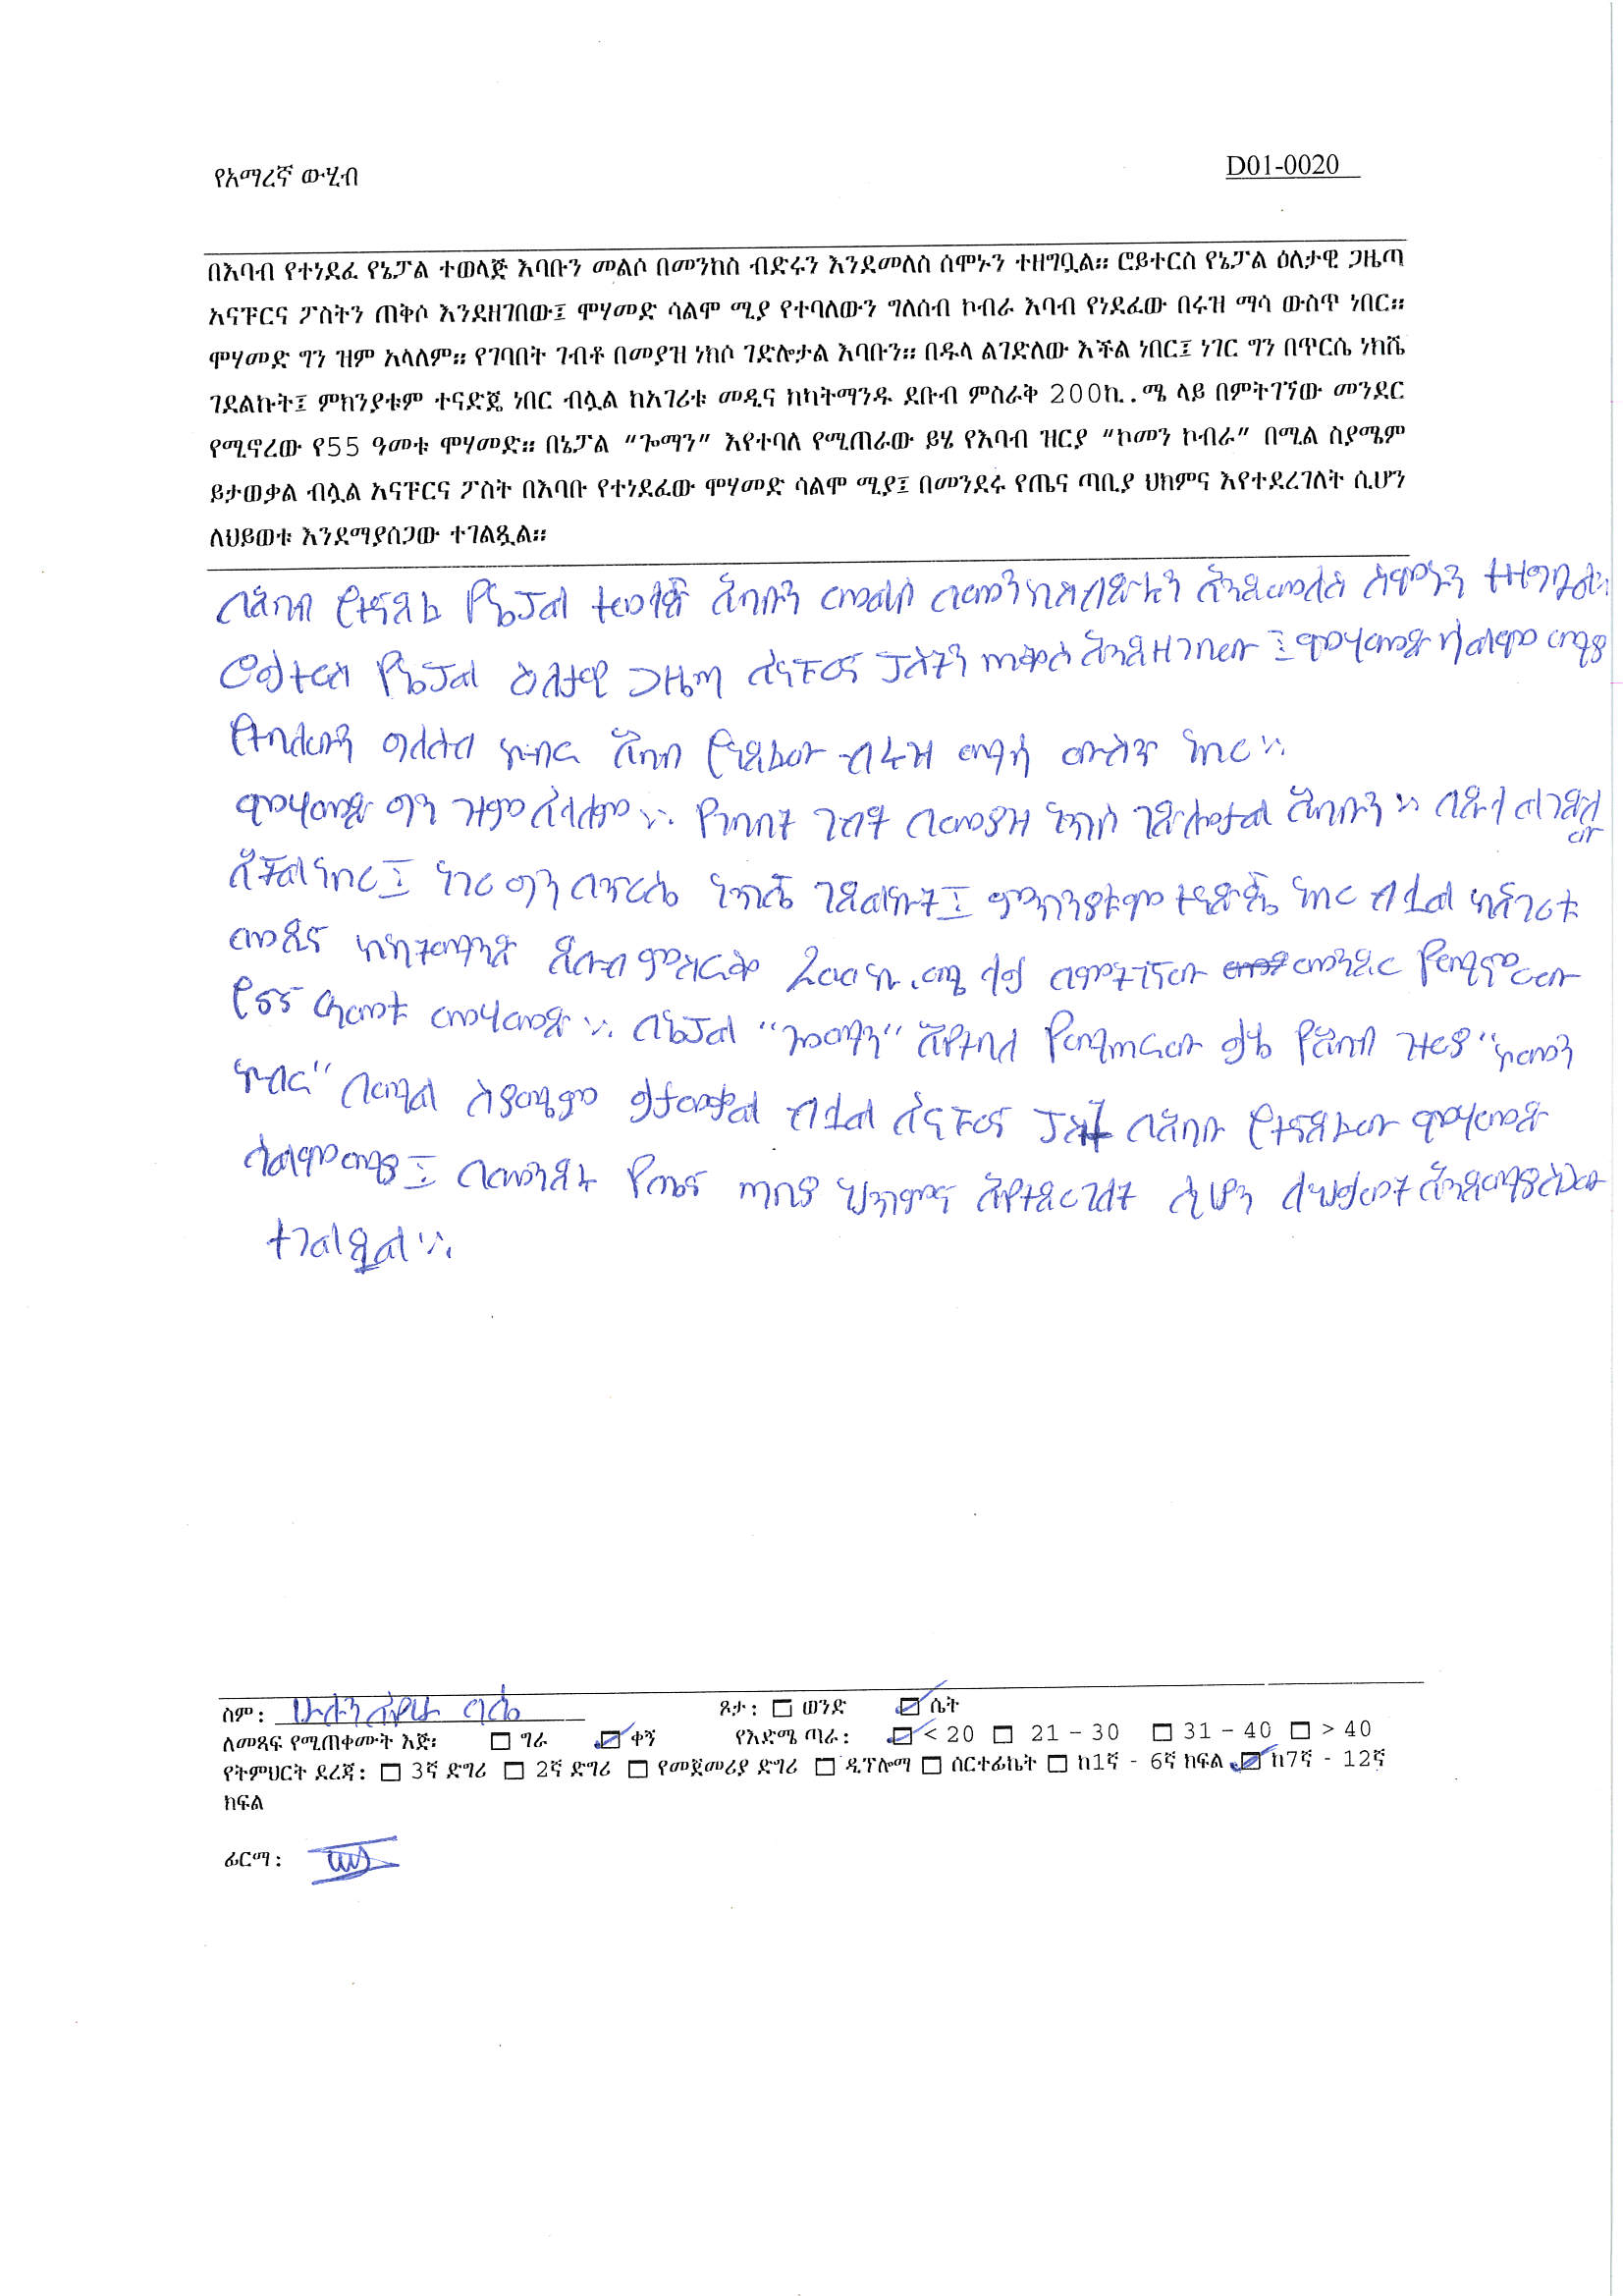 የአማረኛ ውሂብ
D01-0020
በእባብ የተነደፈ የኔፓል ተወላጅ እባቡን መልሶ በመንከስ ብድሩን እንደመለስ ሰሞኑን ተዘግቧል። ሮይተርስ የኔፓል ዕለታዊ ጋዜጣ
አናፑርና ፖስትን ጠቅሶ እንደዘገበው፤ ሞሃመድ ሳልሞ ሚያ የተባለውን ግለሰብ ኮብራ እባብ የነደፈው በሩዝ ማሳ ውስጥ ነበር።
ሞሃመድ ግን ዝም አላለም። የገባበት ገብቶ በመያዝ ነክሶ ገድሎታል እባቡን። በዱላ ልገድለው እችል ነበር፤ ነገር ግን በጥርሴ ነክሼ
ገደልኩት፤ ምክንያቱም ተናድጄ ነበር ብሏል ከአገሪቱ መዲና ክካትማንዱ ደቡብ ምስራቅ 200ኪ.ሜ ላይ በምትገኘው መንደር
የሚኖረው የ55 ዓመቱ ሞሃመድ። በኔፓል “ጐማን” እየተባለ የሚጠራው ይሄ የእባብ ዝርያ “ኮመን ኮብራ” በሚል ስያሜም
ይታወቃል ብሏል አናፑርና ፖስት በእባቡ የተነደፈው ሞሃመድ ሳልሞ ሚያ፤ በመንደሩ የጤና ጣቢያ ህክምና እየተደረገለት ሲሆን
ለህይወቱ እንደማያሰጋው ተገልጿል።
በእባብ የተናደፈ የኔፓል ተወላጅ እባቡን መልሶ በመንከስ ብድሩን እንደመለስ ሰሞኑን ተዘግቧል።
ሮይተርስ የኔፓል ዕለታዊ ጋዜጣ አናፑርና ፖስትን ጠቅሶ እንደዘገበው፤ ሞሃመድ ሳልሞ ሚያ
የተባለውን ግለሰብ ኮብራ እባብ የነደፈው ብሩዝ ማሳ ውስጥ ነበር።
ሞሃመድ ግን ዝም አላለም። የገባበት ገብቶ በመያዝ ነክሶ ገድሎታል እባቡን። በዱላ ልገድለ
ው
እችል ነበር፤ ነገር ግን በጥርሴ ነክሼ ገደልኩት፤ ምክንያቱም ተናድጄ ነበር ብሏል ከአገሪቱ
መዲና ከካትማንዱ ደቡብ ምስራቅ 200ኪ.ሜ ላይ በምትገኘው መንደር የሚኖረው
የ55 ዓመቱ መሃመድ። በኔፓል “ጐማን” እየተባለ የሚጠራው ይሄ የእባብ ዝርያ “ኮመን
ኮብራ” በሚል ስያሜም ይታወቃል ብሏል አናፑርና ፖስት በእባቡ የተናደፈው ሞሃመድ
ሳልሞ ሚያ፤ በመንደሩ የጤና ጣቢያ ህክምና እየተደረገለት ሲሆን ለህይወት እንደማያሰጋው
ተገልጿል።
ስም:
ጾታ: ወንድ ሴት
ለመጻፍ የሚጠቀሙት እጅ፡ ግራ ቀኝ የእድሜ ጣራ: < 20 21 – 30 31 – 40 > 40
የትምህርት ደረጃ: 3ኛ ድግሪ 2ኛ ድግሪ የመጀመሪያ ድግሪ ዲፕሎማ ሰርተፊኬት ከ1ኛ - 6ኛ ክፍል ከ7ኛ - 12ኛ
ክፍል
ፊርማ: